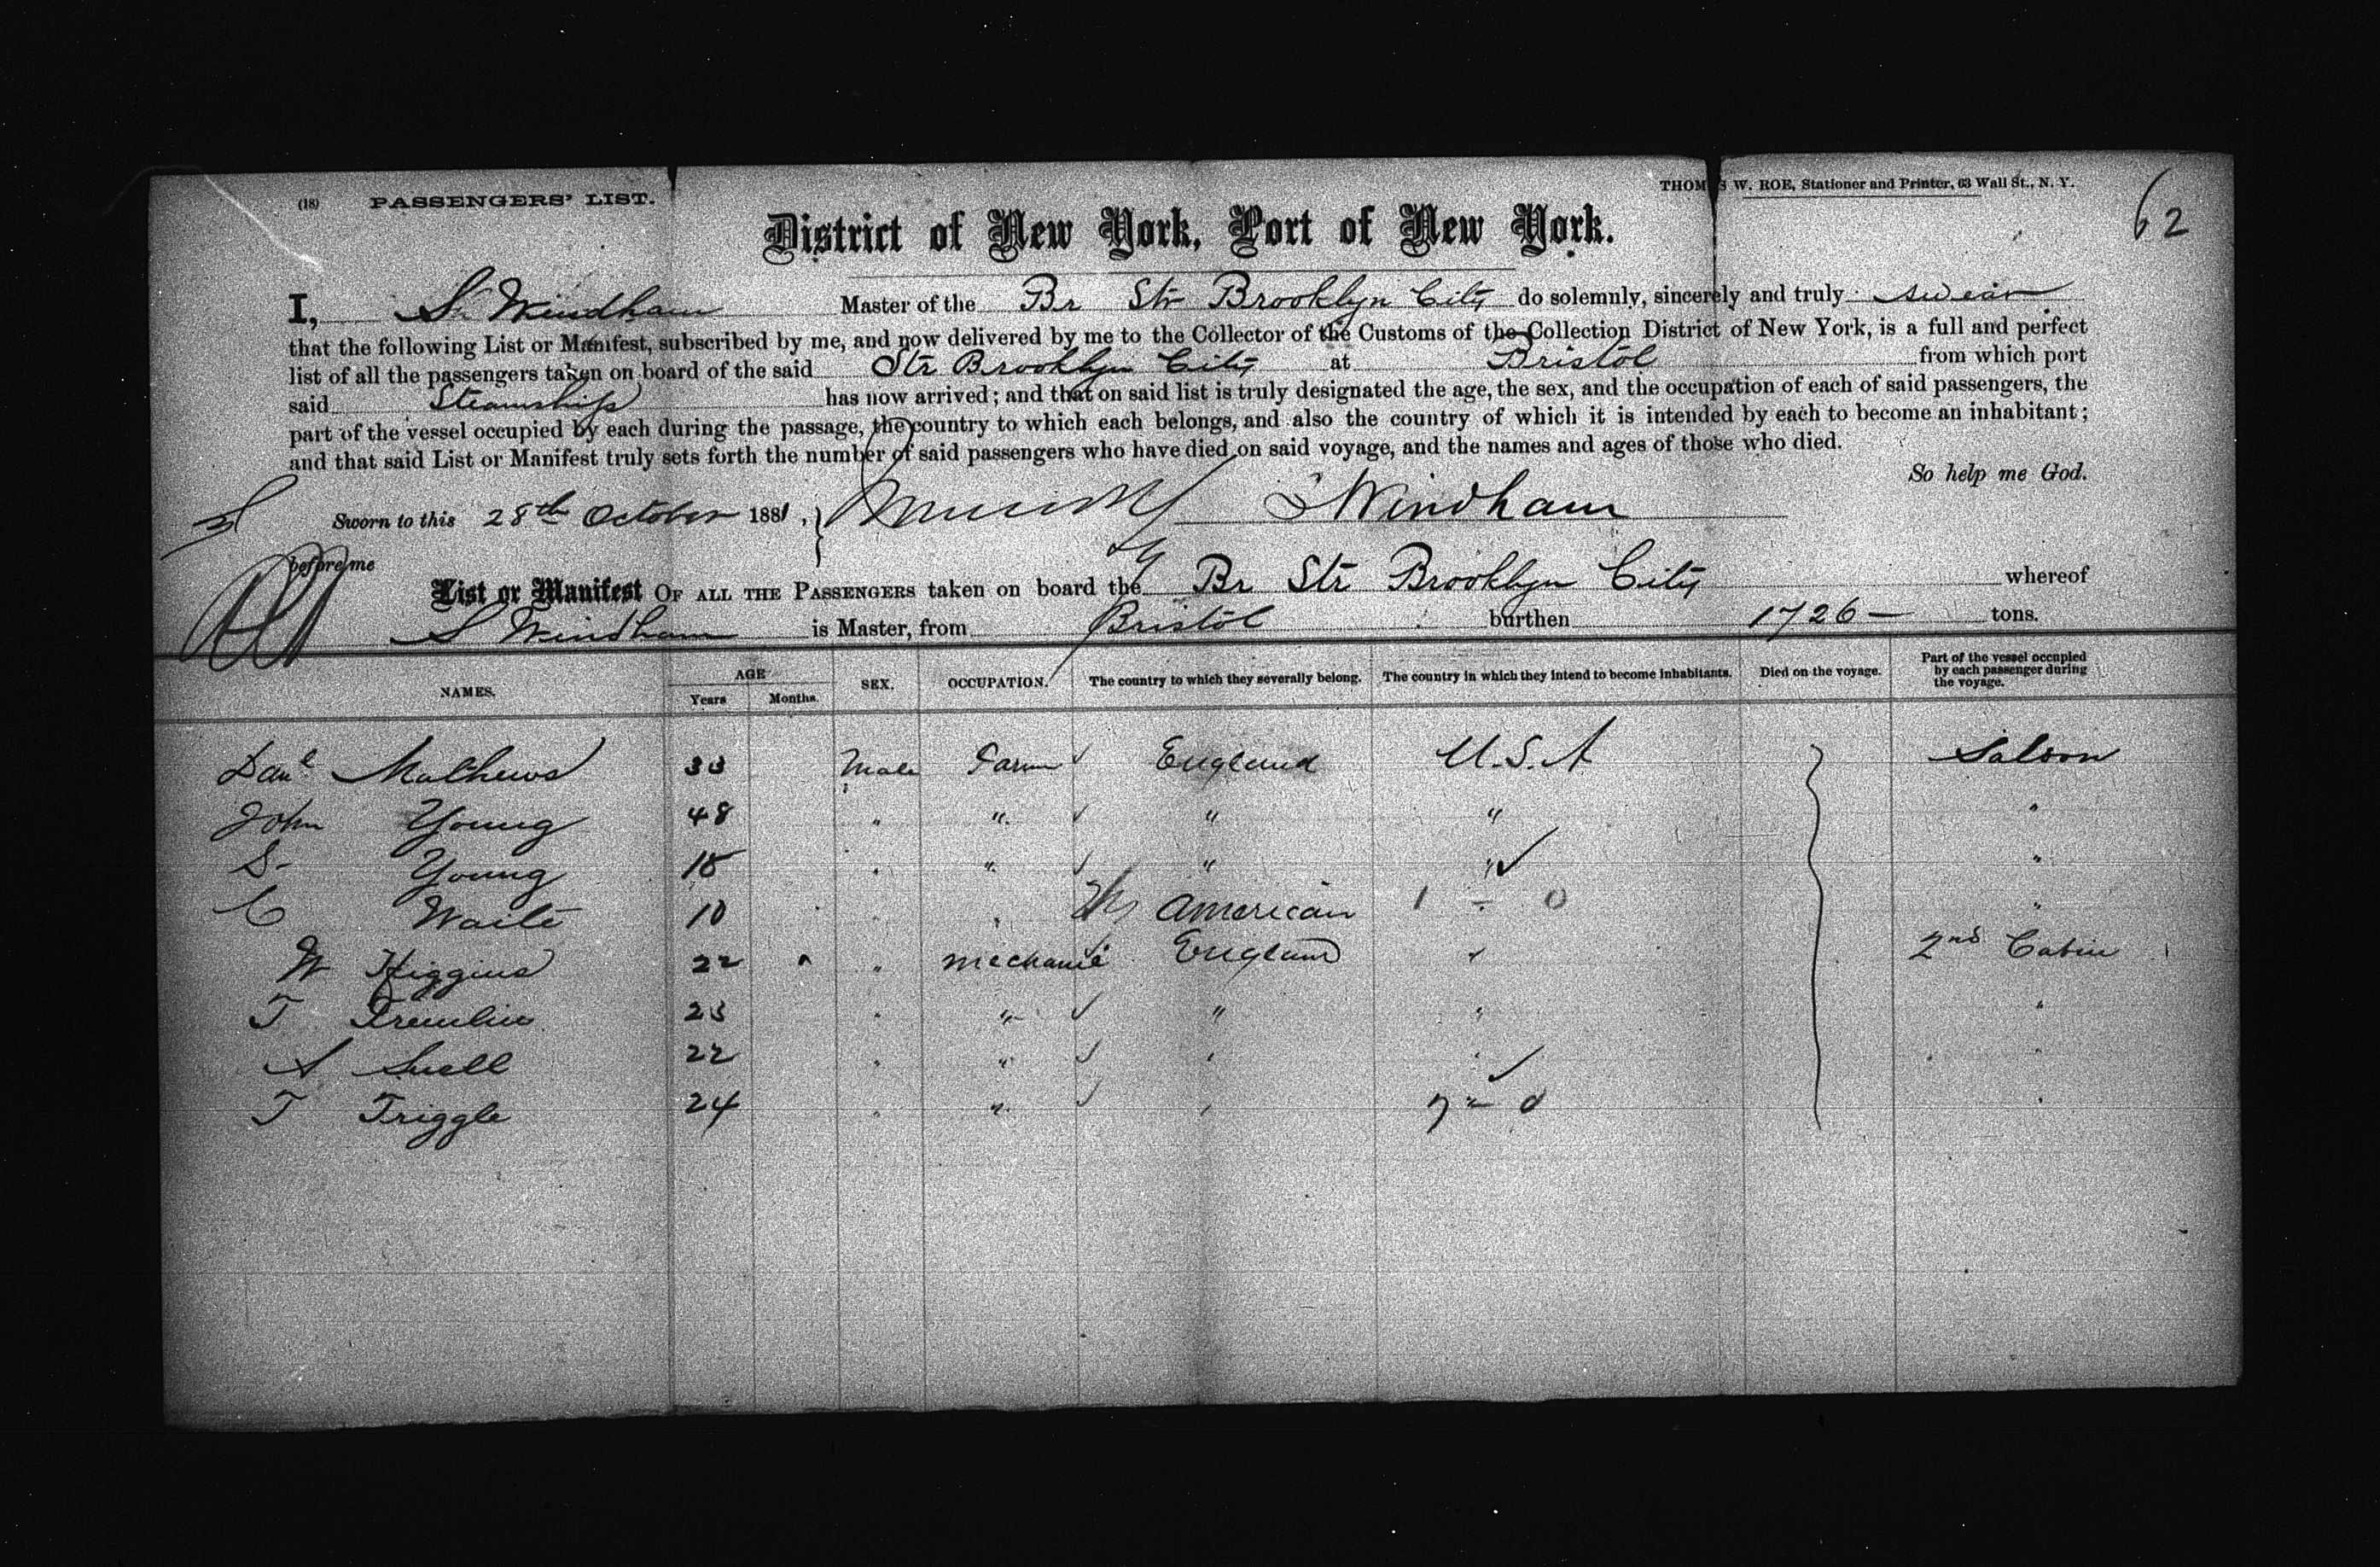 (18) PASSENGERS' LIST.
THOMAS W. ROE, Stationer and Printer, 63 Wall St., N. Y.
62
District of New York, Port of New York.
I, S Windham Master of the Br Str Brooklyn City do solemnly, sincerely and truly swear
that the following List or Manifest, subscribed by me, and now delivered by me to the Collector of the Customs of the Collection District of New York, is a full and perfect
list of all the passengers taken on board of the said Str Brooklyn City at Bristol from which port
said Steamship has now arrived; and that on said list is truly designated the age, the sex, and the occupation of each of said passengers, the
part of the vessel occupied by each during the passage, the country to which each belongs, and also the country of which it is intended by each to become an inhabitant;
and that said List or Manifest truly sets forth the number of said passengers who have died on said voyage, and the names and ages of those who died.
So help me God.
Sworn to this 28th October 1881, S Windham
before me
List or Manifest OF ALL THE PASSENGERS taken on board the Br Str Brooklyn City whereof
S Windham is Master, from Bristol burthen 1726 — tons.
NAMES. AGE Years Months. SEX. OCCUPATION. The country to which they severally belong. The country in which they intend to become inhabitants. Died on the voyage. Part of the vessel occupied by each passenger during the voyage.
Danl Mathews 33 Male Farm ✓ England U.S.A Saloon
John Young 48 " " ✓ " " "
S- Young 18 " " ✓ " " ✓ "
C Waite 10 " " American 1 - 0 "
W Higgins 22 " mechanic England " 2nd Cabin
T 23 " " ✓ " " "
A Snell 22 " " ✓ " " ✓ "
T Triggle 24 " " ✓ " 7 " 0 "